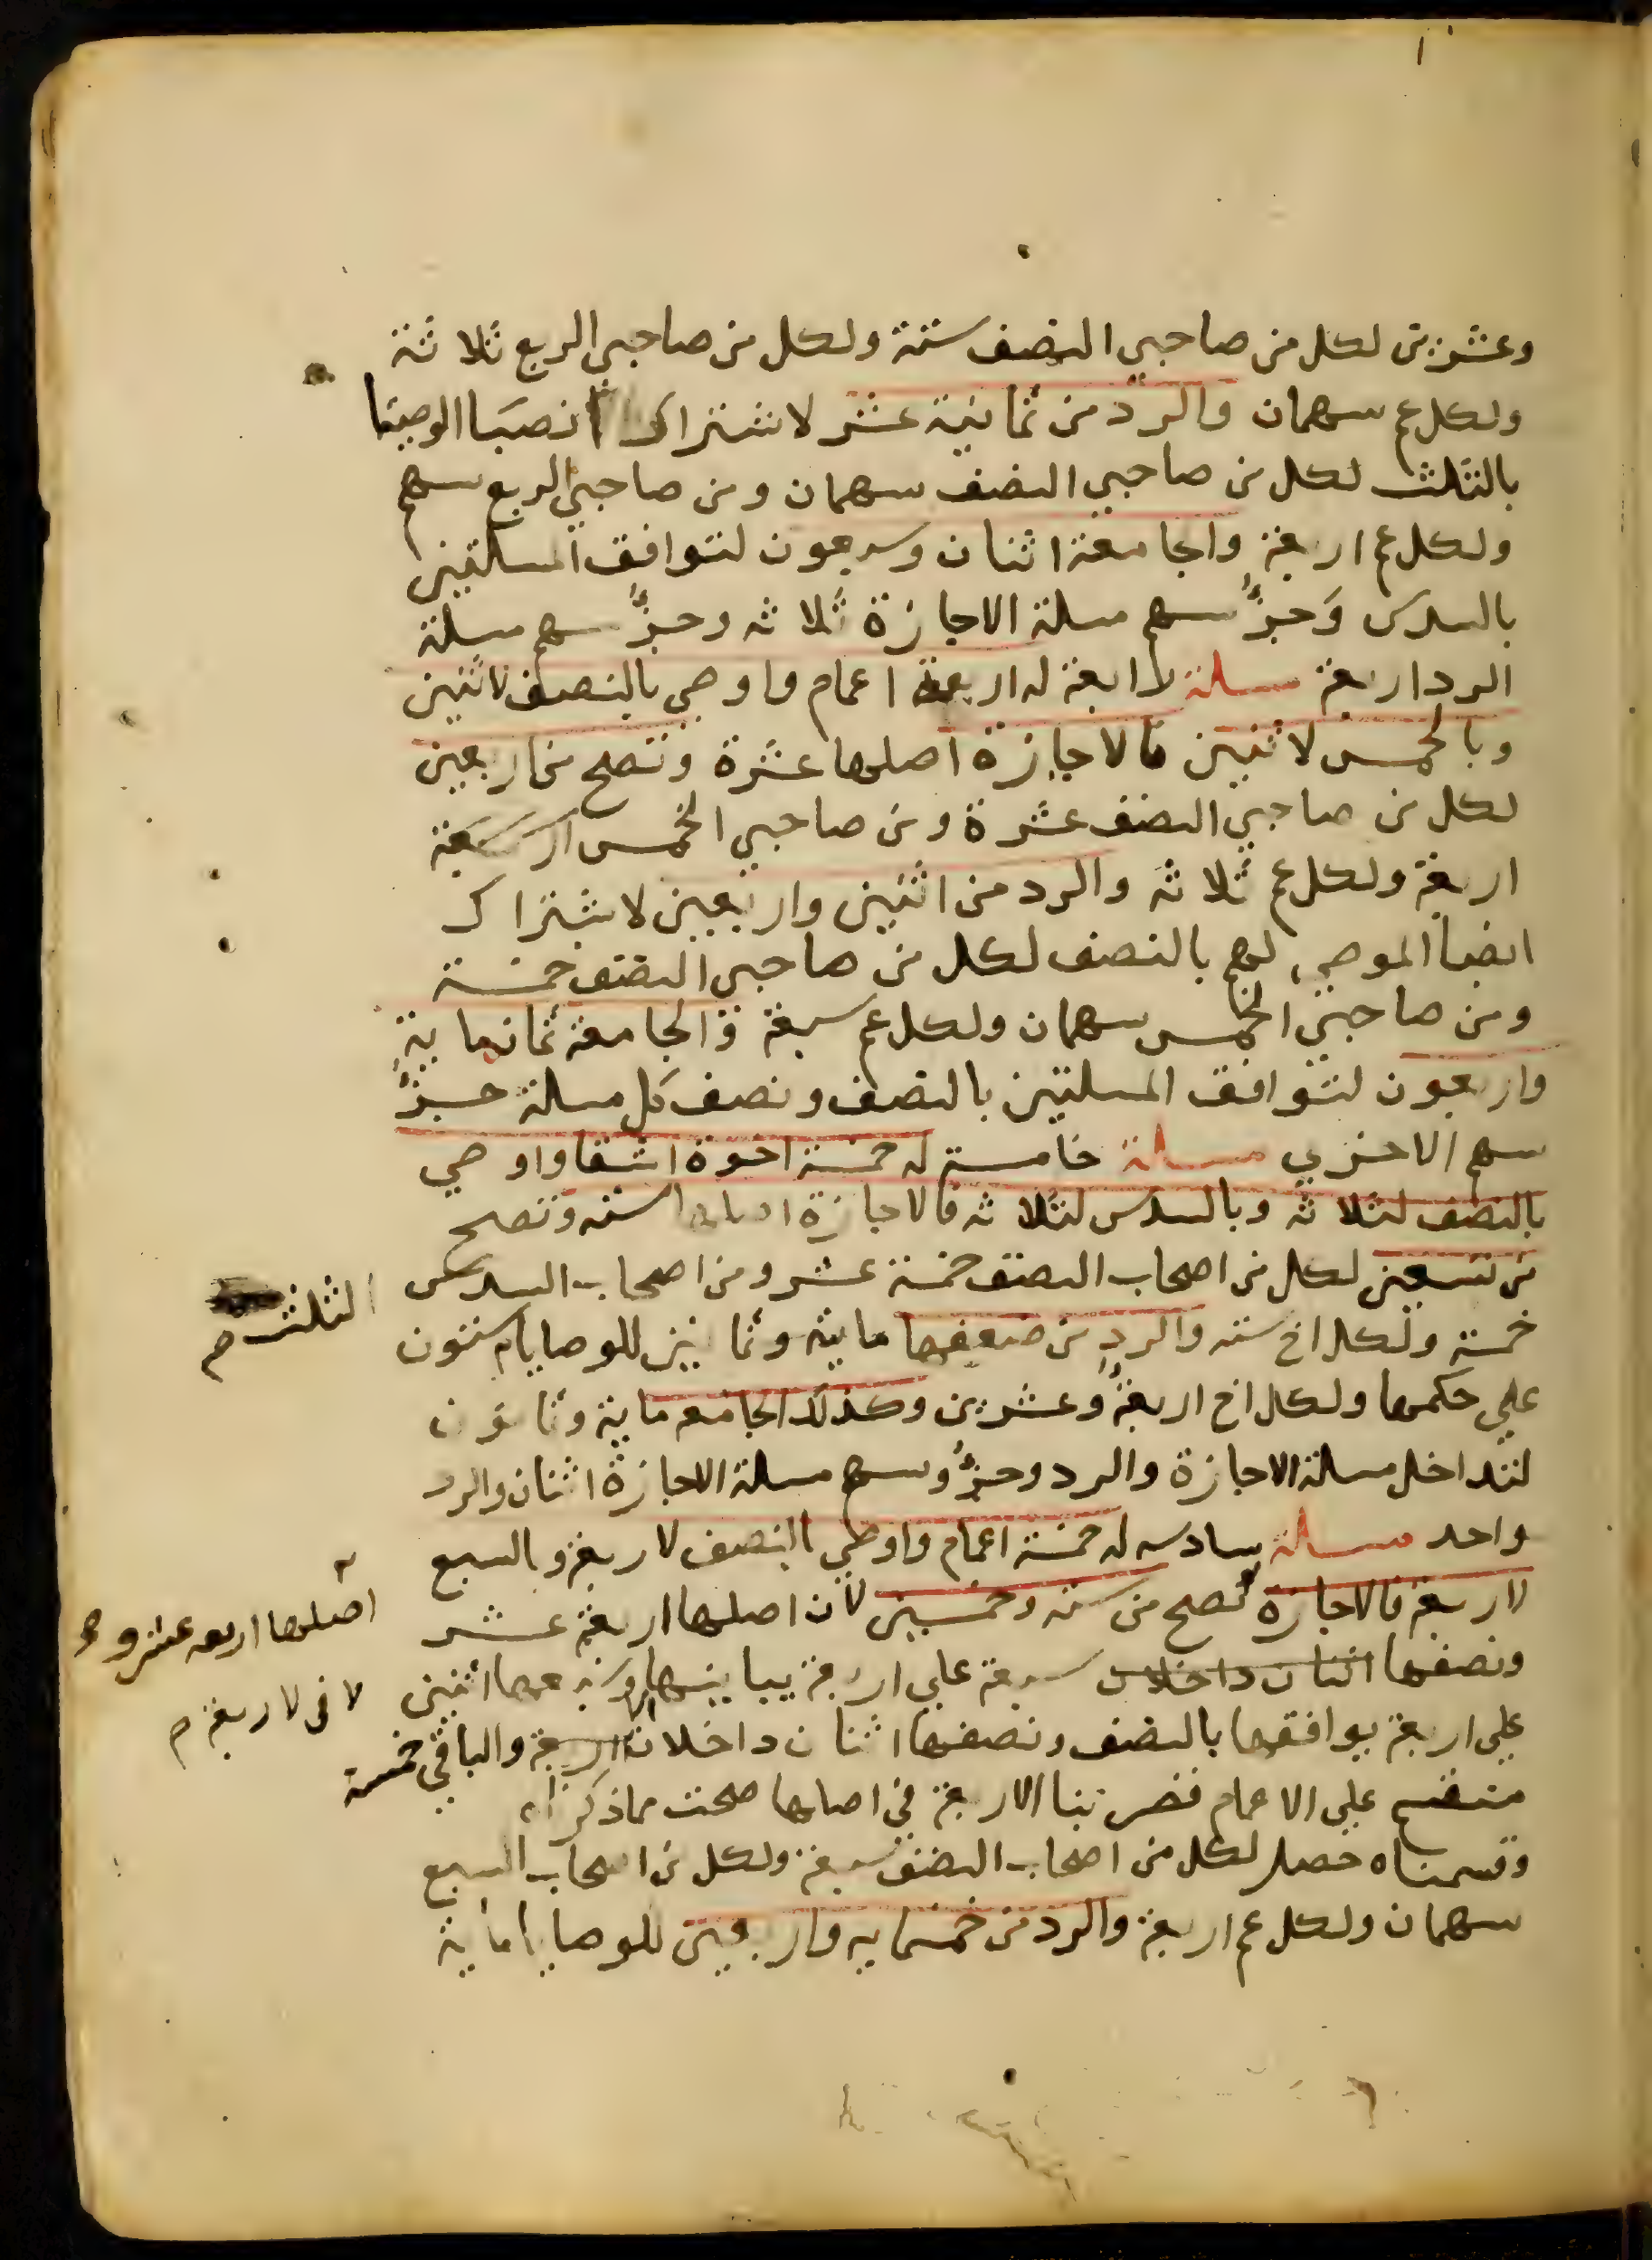 وعشرين لكل من صاحبي النصف ستة ولكل من صاحبي الربع ثلاثة
ولكل عم سهمان والرد من ثمانية عشر لاشتراك انصبا الوصيتا
بالثلث لكل من صاحبي النصف سهمان ومن صاحبي الربع سهم
ولكل عم اربعة والجامعة اثنان وسبعون لتوافق المسالتين
بالسدس وجزؤ سهم مسلة الاجازة ثلاثه وجزؤ سهم مسلة
الرد اربعة مسلة رابعة له اربعة اعمام واوصي بالنصف لاثنين
وبالخمس لاثنين فالاجازة اصلها عشرة وتصح من اربعين
لكل من صاحبي النصف عشرة ومن صاحبي الخمس
اربعة ولكل عم ثلاثة والرد من اثنين واربعين لاشتراك
انصبا الموصي لهم بالنصف لكل من صاحبي النصف خمسة
ومن صاحبي الخمس سهمان ولكل عم سبعة والجامعة ثمانماية
واربعون لتوافق المسلتين بالنصف ونصف كل مسلة جزؤ
سهم الاخري مسلة خامسة له خمسة اخوة اشقا واوصي
بالنصف لثلاثه وبالسدس لثلاثه فالاجازة اصلها سته وتصح
من تسعين لكل من اصحاب النصف خمسة عشر ومن اصحاب السدس
خمسة ولكل اخ سته والرد من ضعفها ماية وثمانين للوصايا ستون
علي حكمها ولكل اخ اربعة وعشرين وكذلك الجامعه ماية وثمانون
لتداخل مسلة الاجازة والرد وجزؤ سهم مسلة الاجازة اثنان والرد
واحد مسلة سادسه له خمسة اعمام واوصي بالنصف لاربعة وبالسبع
لاربعة فالاجازة تصح من سته وخمسين لان اصلها اربعة عشر
ونصفها اثنان داخلان سبعة علي اربعة يباينها وسبعها اثنين
علي اربعة يوافقها بالنصف ونصفها اثنان داخلان اربعة والباقي خمسة
منقسم علي الاعمام فضربنا الاربعة في اصلها صحت مما ذكر
وقسمناه حصل لكل من اصحاب النصف سبعة ولكل من اصحاب السبع
سهمان ولكل عم اربعة والرد من خمسمايه واربعين للوصايا ماية
الثلث م
اصلها اربعه عشر و
لا في لاربعة م